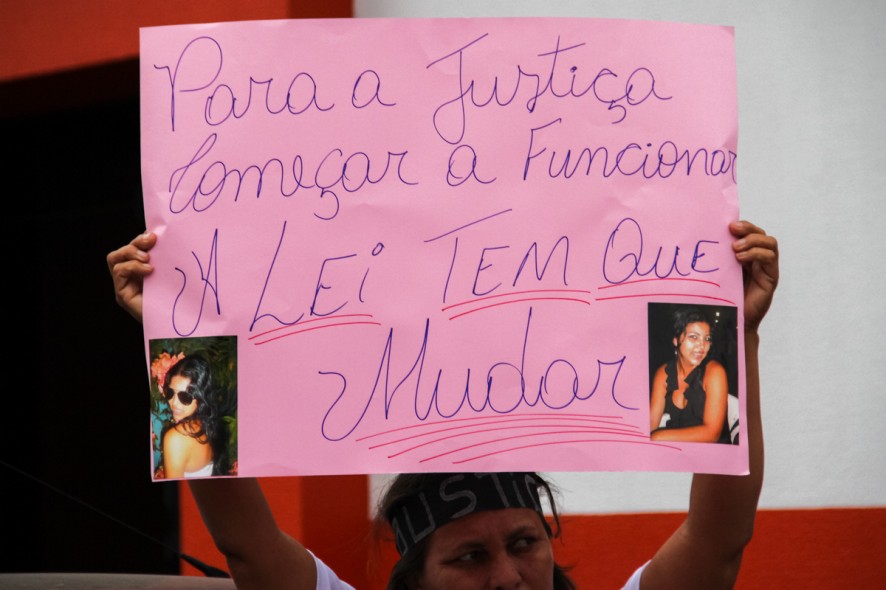 Para a Justiça
Começar a Funcionar
A LEi TEM QUE
Mudar
JUSTI